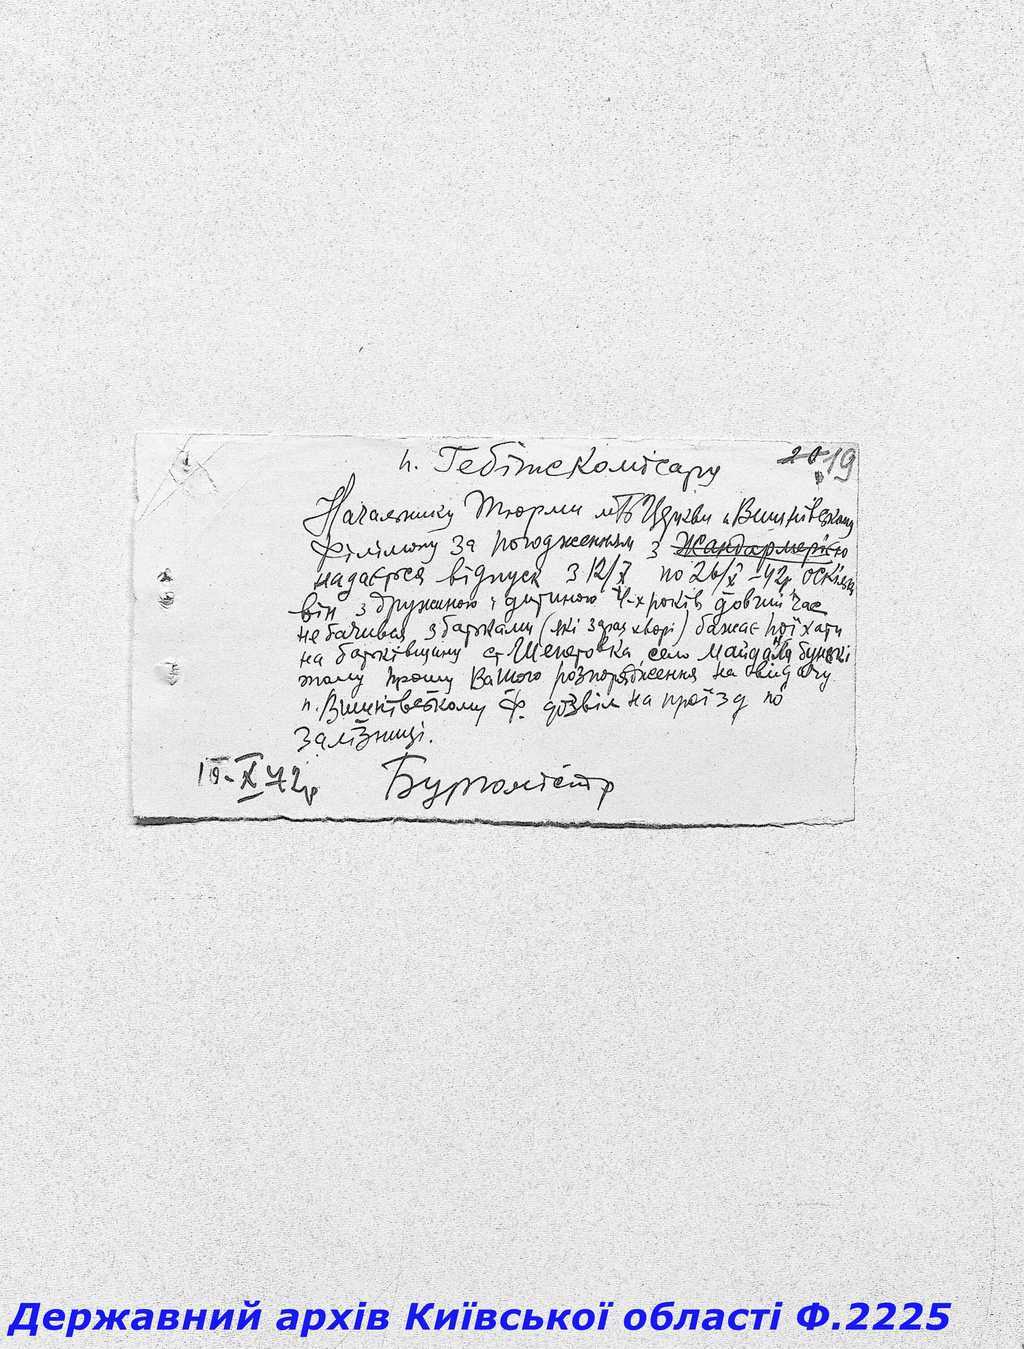 п. Гебітскомісару
20 19
Начальнику Тюрми м Б Церкви п Вишнівському
Філімону за погодженням з Жандармерією
надається відпуск з 12/X по 26/X –42р оскільки
він з дружиною і дитиною 4-х років довгий час
не бачився з батьками (які зараз хворі) бажає поїхати
на батьківщину ст Шепетовка село Майдан
тому прошу Вашого розпорядження на видачу
п. Вишнівському Ф. дозвіл на проїзд по
залізниці.
X 42р Бургомістр
Державний архів Київської області Ф.2225